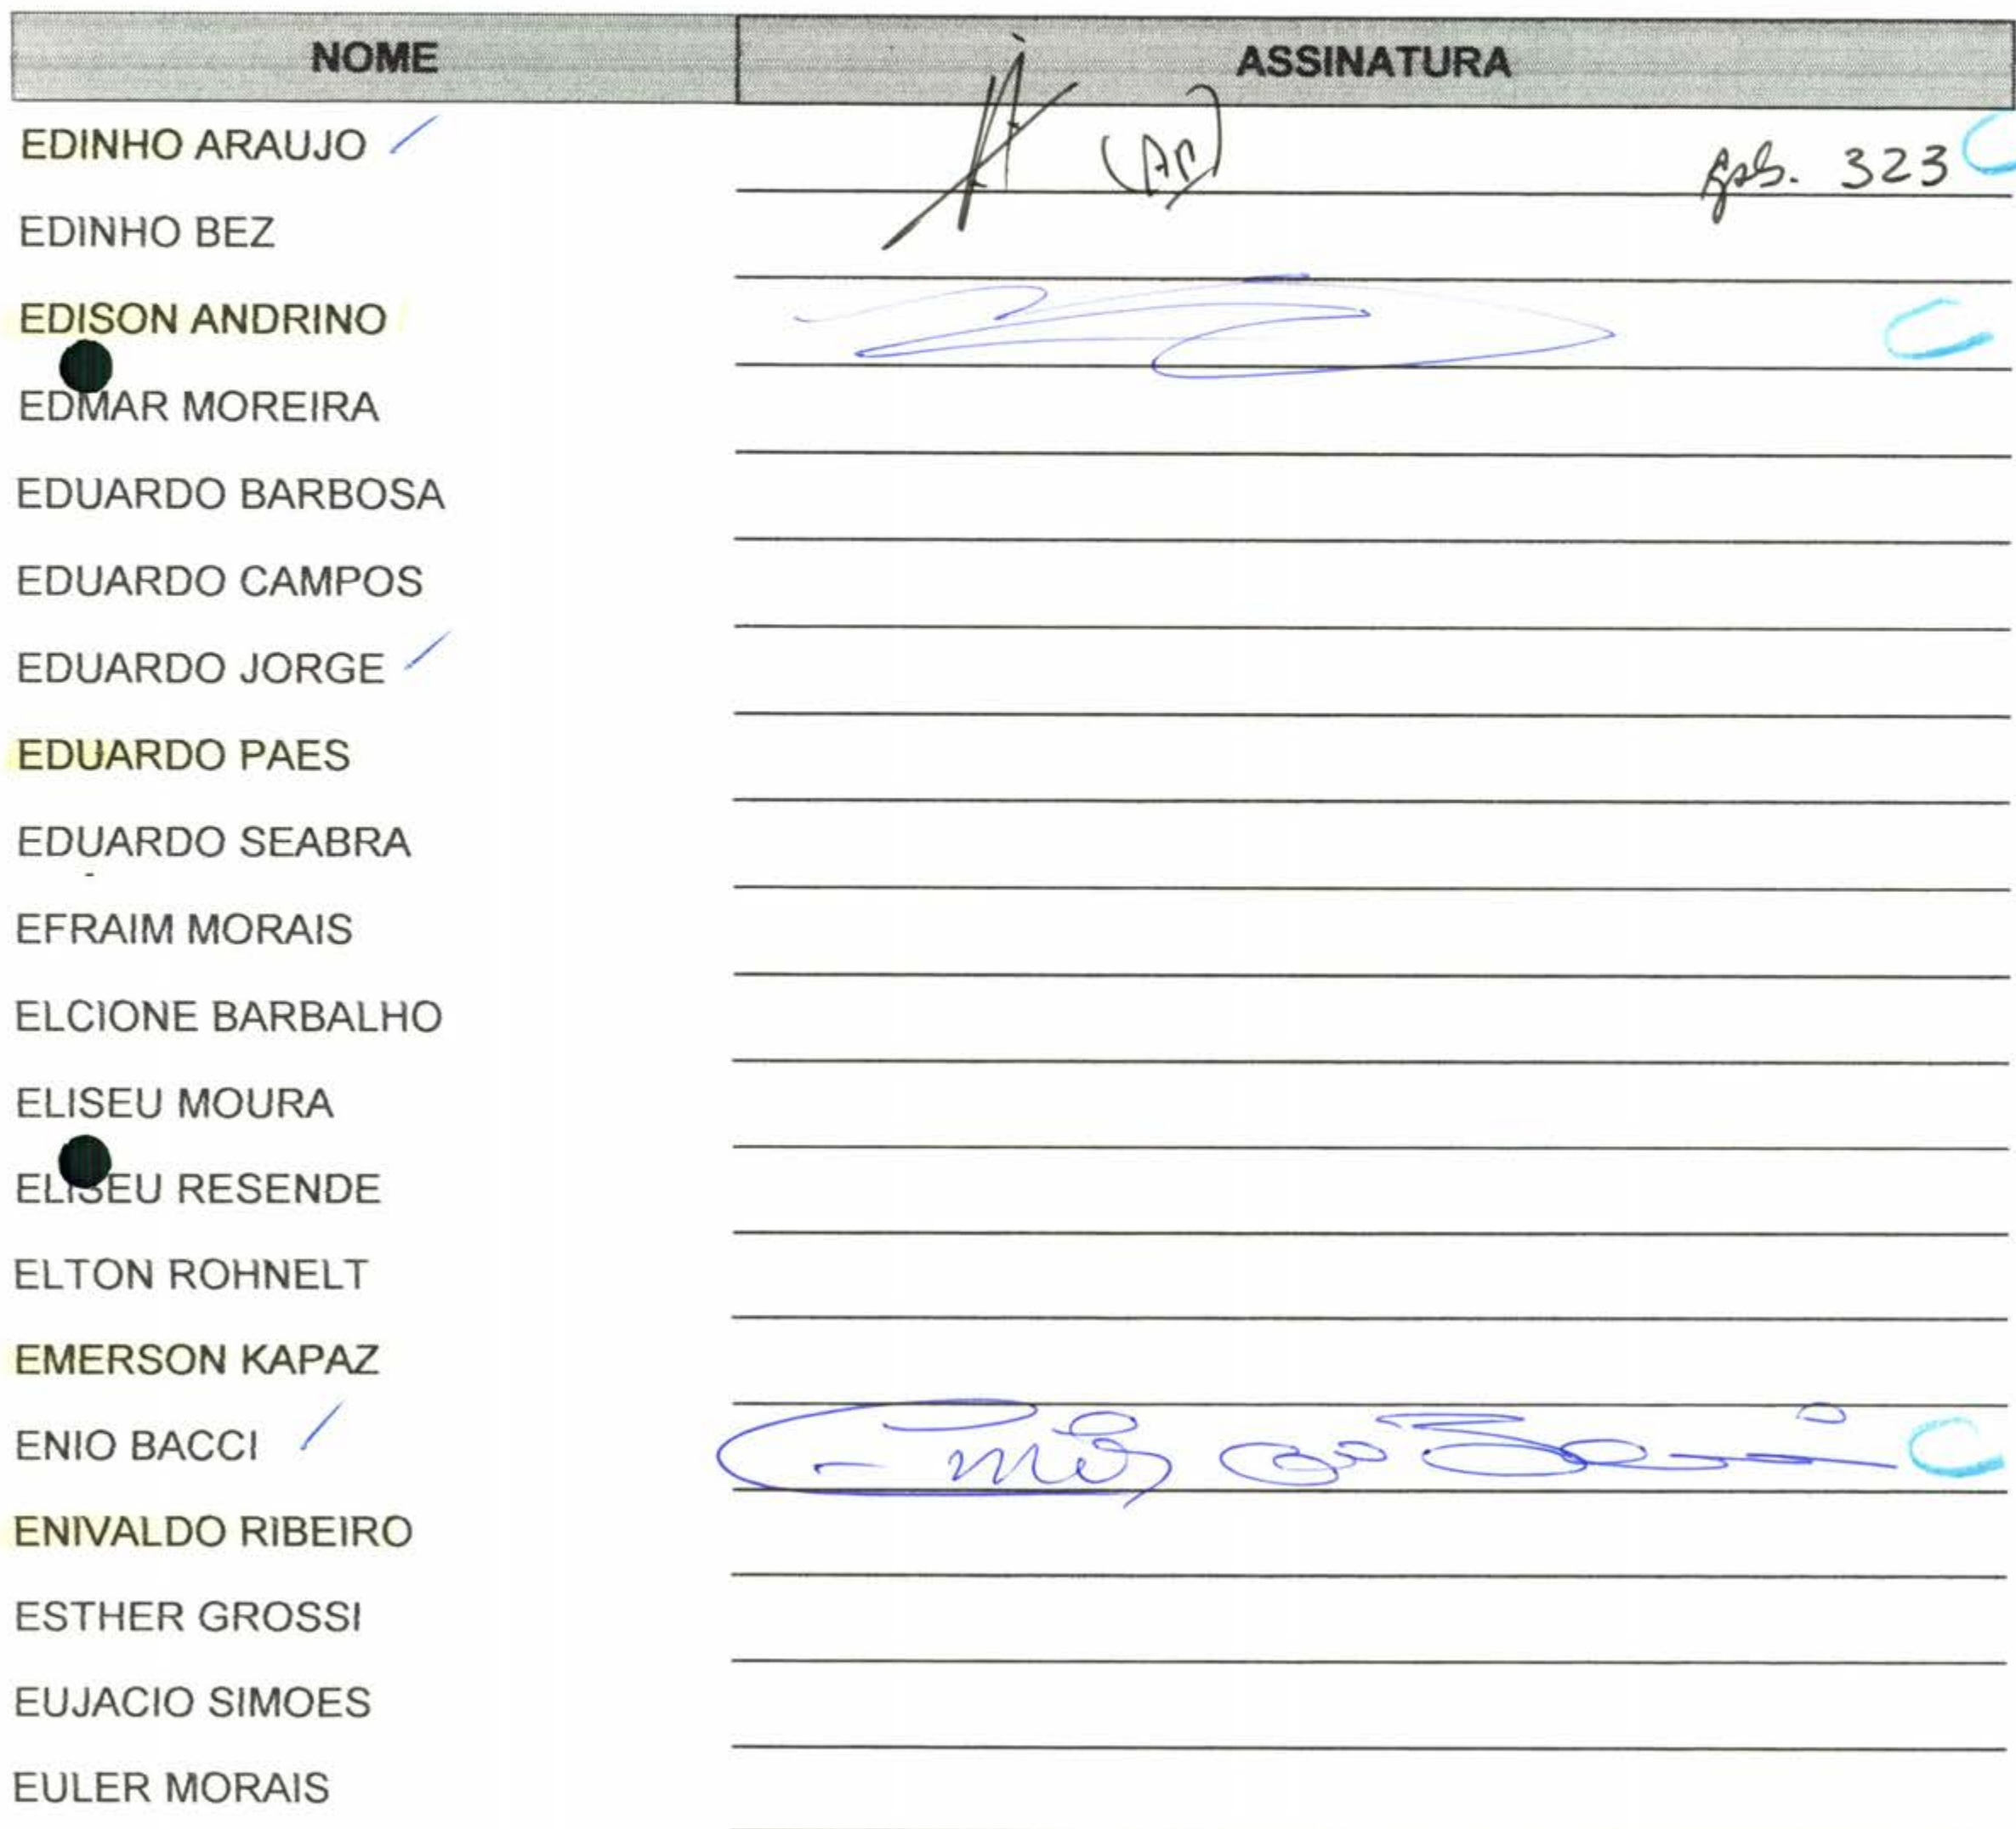 NOME ASSINATURA
EDINHO ARAUJO gab. 323 C
EDINHO BEZ
EDISON ANDRINO C
EDMAR MOREIRA
EDUARDO BARBOSA
EDUARDO CAMPOS
EDUARDO JORGE
EDUARDO PAES
EDUARDO SEABRA
EFRAIM MORAIS
ELCIONE BARBALHO
ELISEU MOURA
ELISEU RESENDE
ELTON ROHNELT
EMERSON KAPAZ
ENIO BACCI C
ENIVALDO RIBEIRO
ESTHER GROSSI
EUJACIO SIMOES
EULER MORAIS